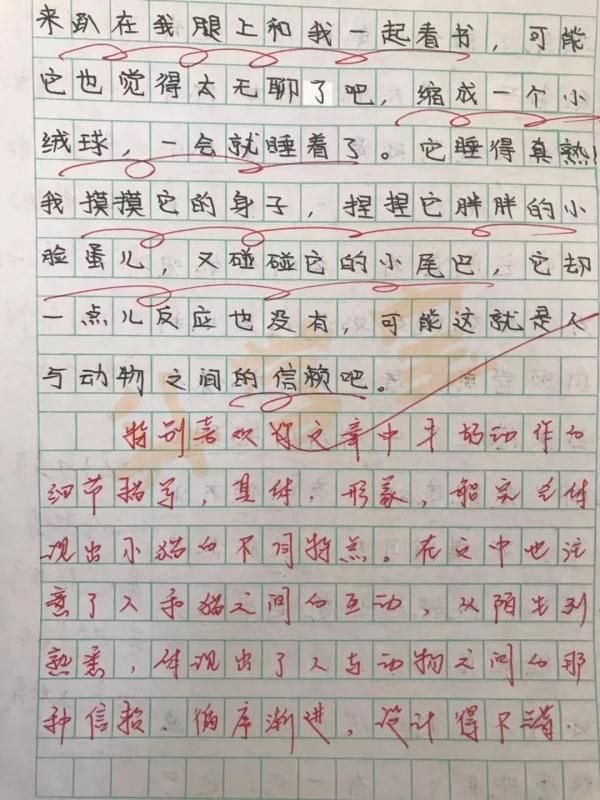 来趴在我腿上和我一起看书，可能
它也觉得太无聊了吧，缩成一个小
绒球，一会就睡着了。它睡得真熟！
我摸摸它的身子，捏捏它胖胖的小
脸蛋儿，又碰碰它的小尾巴，它却
一点儿反应也没有，可能这就是人
与动物之间的信赖吧。
特别喜欢你文章中动作的
细节描写，具体，形象，体
现出小猫的不同特点。在文中也注
意了人和猫之间的互动，从陌生到
熟悉，体现出了人与动物之间的那
种信赖，循序渐进，设计得不错